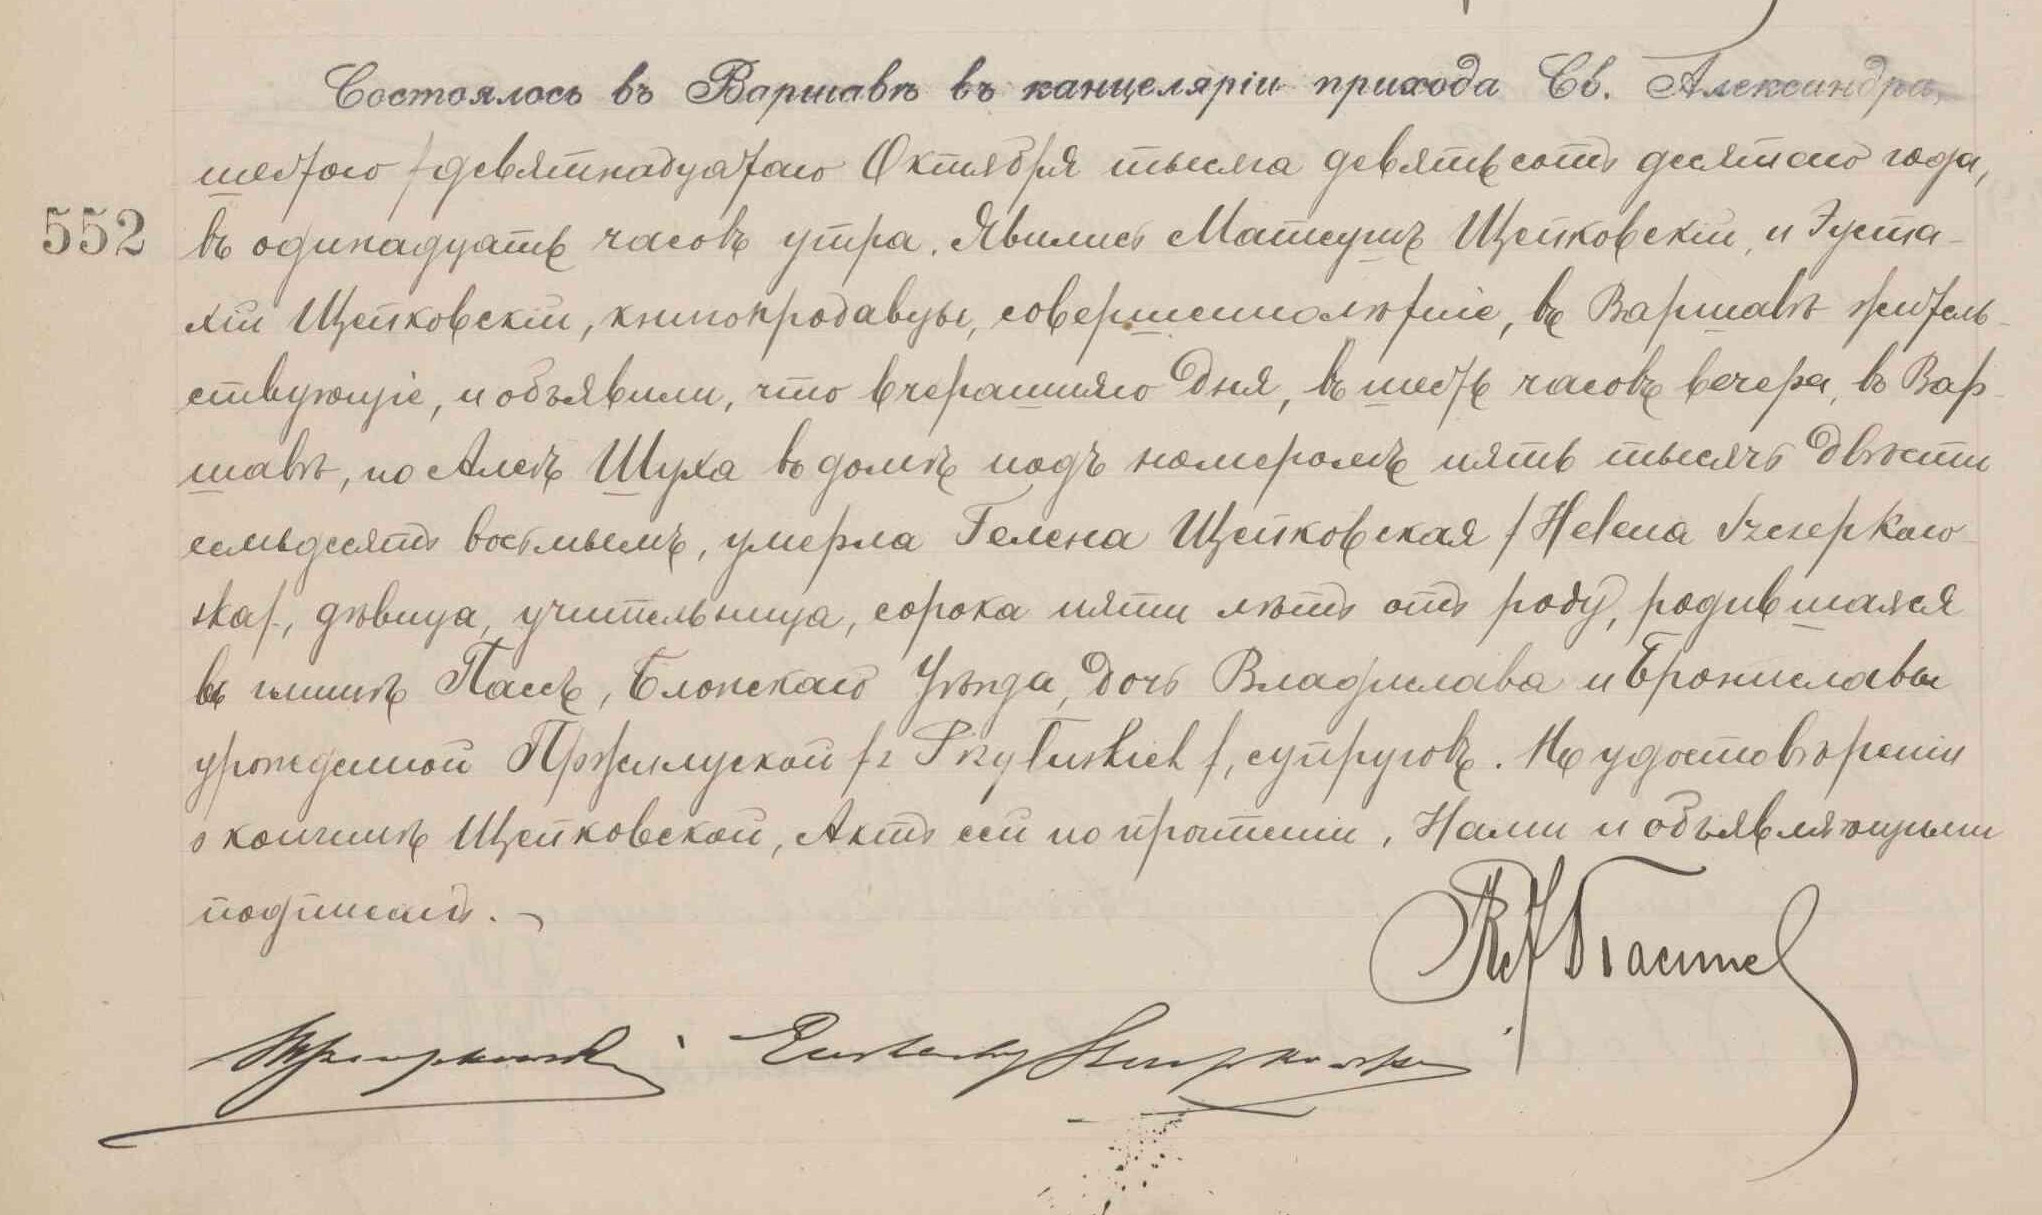 Состоялось въ Варшавѣ въ канцеляріи прихода Св. Александра,
шестого /девятнадцатаго Октября тысяча девятьсотъ десятаго года,
552 въ одинадцать часовъ утра. Явились Матеушъ Щепковскій, и Эуста-
хій Щепковскій, книгопродавцы, совершеннолѣтніе, въ Варшавѣ житель-
ствующіе, и объявили, что вчерашняго дня, въ шесть часовъ вечера, въ Вар-
шавѣ, по Алеѣ Шуха въ домѣ подъ номеромъ пять тысячъ двѣсти
семьдесятъ восьмымъ, умерла Гелена Щепковская /Helena Szczepkow-
ska/, дѣвица, учительница, сорока пяти лѣтъ отъ роду, родившаяся
въ гминѣ Пассъ, Блонскаго Уѣзда, дочь Владислава и Брониславы
урожденной Пржилуской /z Przyłuskich/, супруговъ. По удостовѣреніи
о кончинѣ Щепковской, Актъ сей по прочтеніи, Нами и объявляющими
подписанъ.
Eustachy Szczepkowski